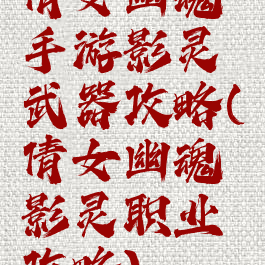 倩女幽魂
手游影灵
武器攻略(
倩女幽魂
影灵职业
攻略)